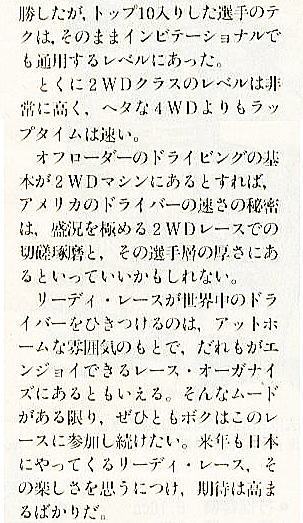 勝したが，トップ10入りした選手のテ
クは，そのままインビテーショナルで
も通用するレベルにあった。
とくに２ＷＤクラスのレベルは非
常に高く，ヘタな４ＷＤよりもラッ
プタイムは速い。
オフローダーのドライビングの基
本が２ＷＤマシンにあるとすれば，
アメリカのドライバーの速さの秘密
は，盛況を極める２ＷＤレースでの
切磋琢磨と，その選手層の厚さにあ
るといっていいかもしれない。
リーディ・レースが世界中のドラ
イバーをひきつけるのは，アットホ
ームな雰囲気のもとで，だれもがエ
ンジョイできるレース・オーガナイ
ズにあるともいえる。そんなムード
がある限り，ぜひともボクはこのレ
ースに参加し続けたい。来年も日本
にやってくるリーディ・レース，そ
の楽しさを思うにつけ，期待は高ま
るばかりだ。